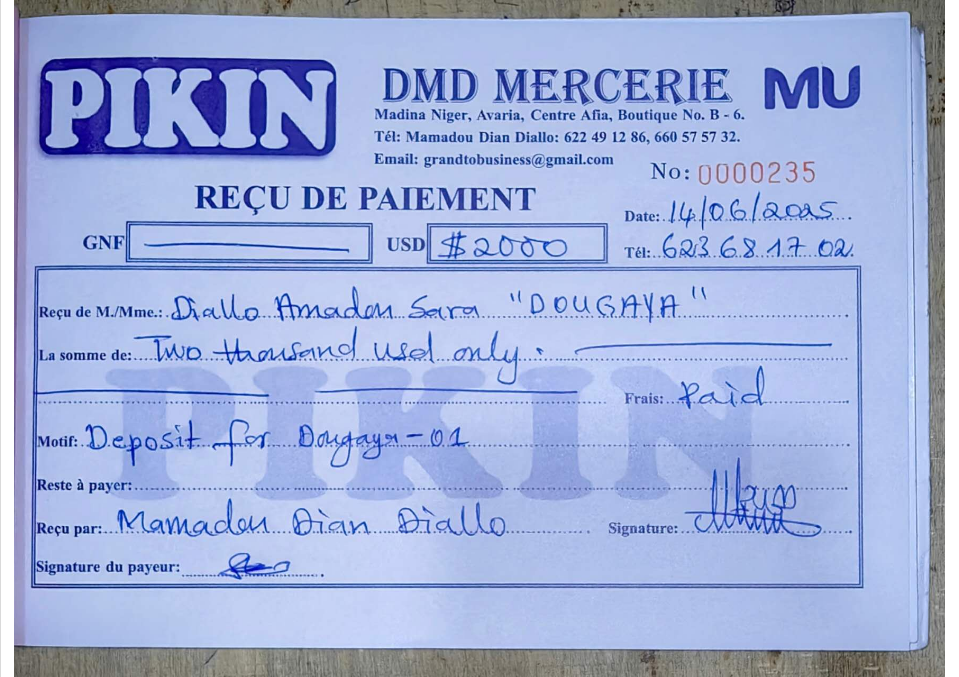 PIKIN
DMD MERCERIE
MU
Madina Niger, Avaria, Centre Afia, Boutique No. B - 6.
Tél: Mamadou Dian Diallo: 622 49 12 86, 660 57 57 32.
Email: grandtobusiness@gmail.com
No: 0000235
REÇU DE PAIEMENT
Date: 14/06/2025
GNF
USD $2000
Tél: 623 68 17 02
Reçu de M./Mme.: Diallo Amadou Sara "DOUGAYA"
La somme de: Two thousand usd only.
Frais: Paid
PIKIN
Motif: Deposit for Dougaya-01
Reste à payer:
Reçu par: Mamadou Dian Diallo
Signature:
Signature du payeur: